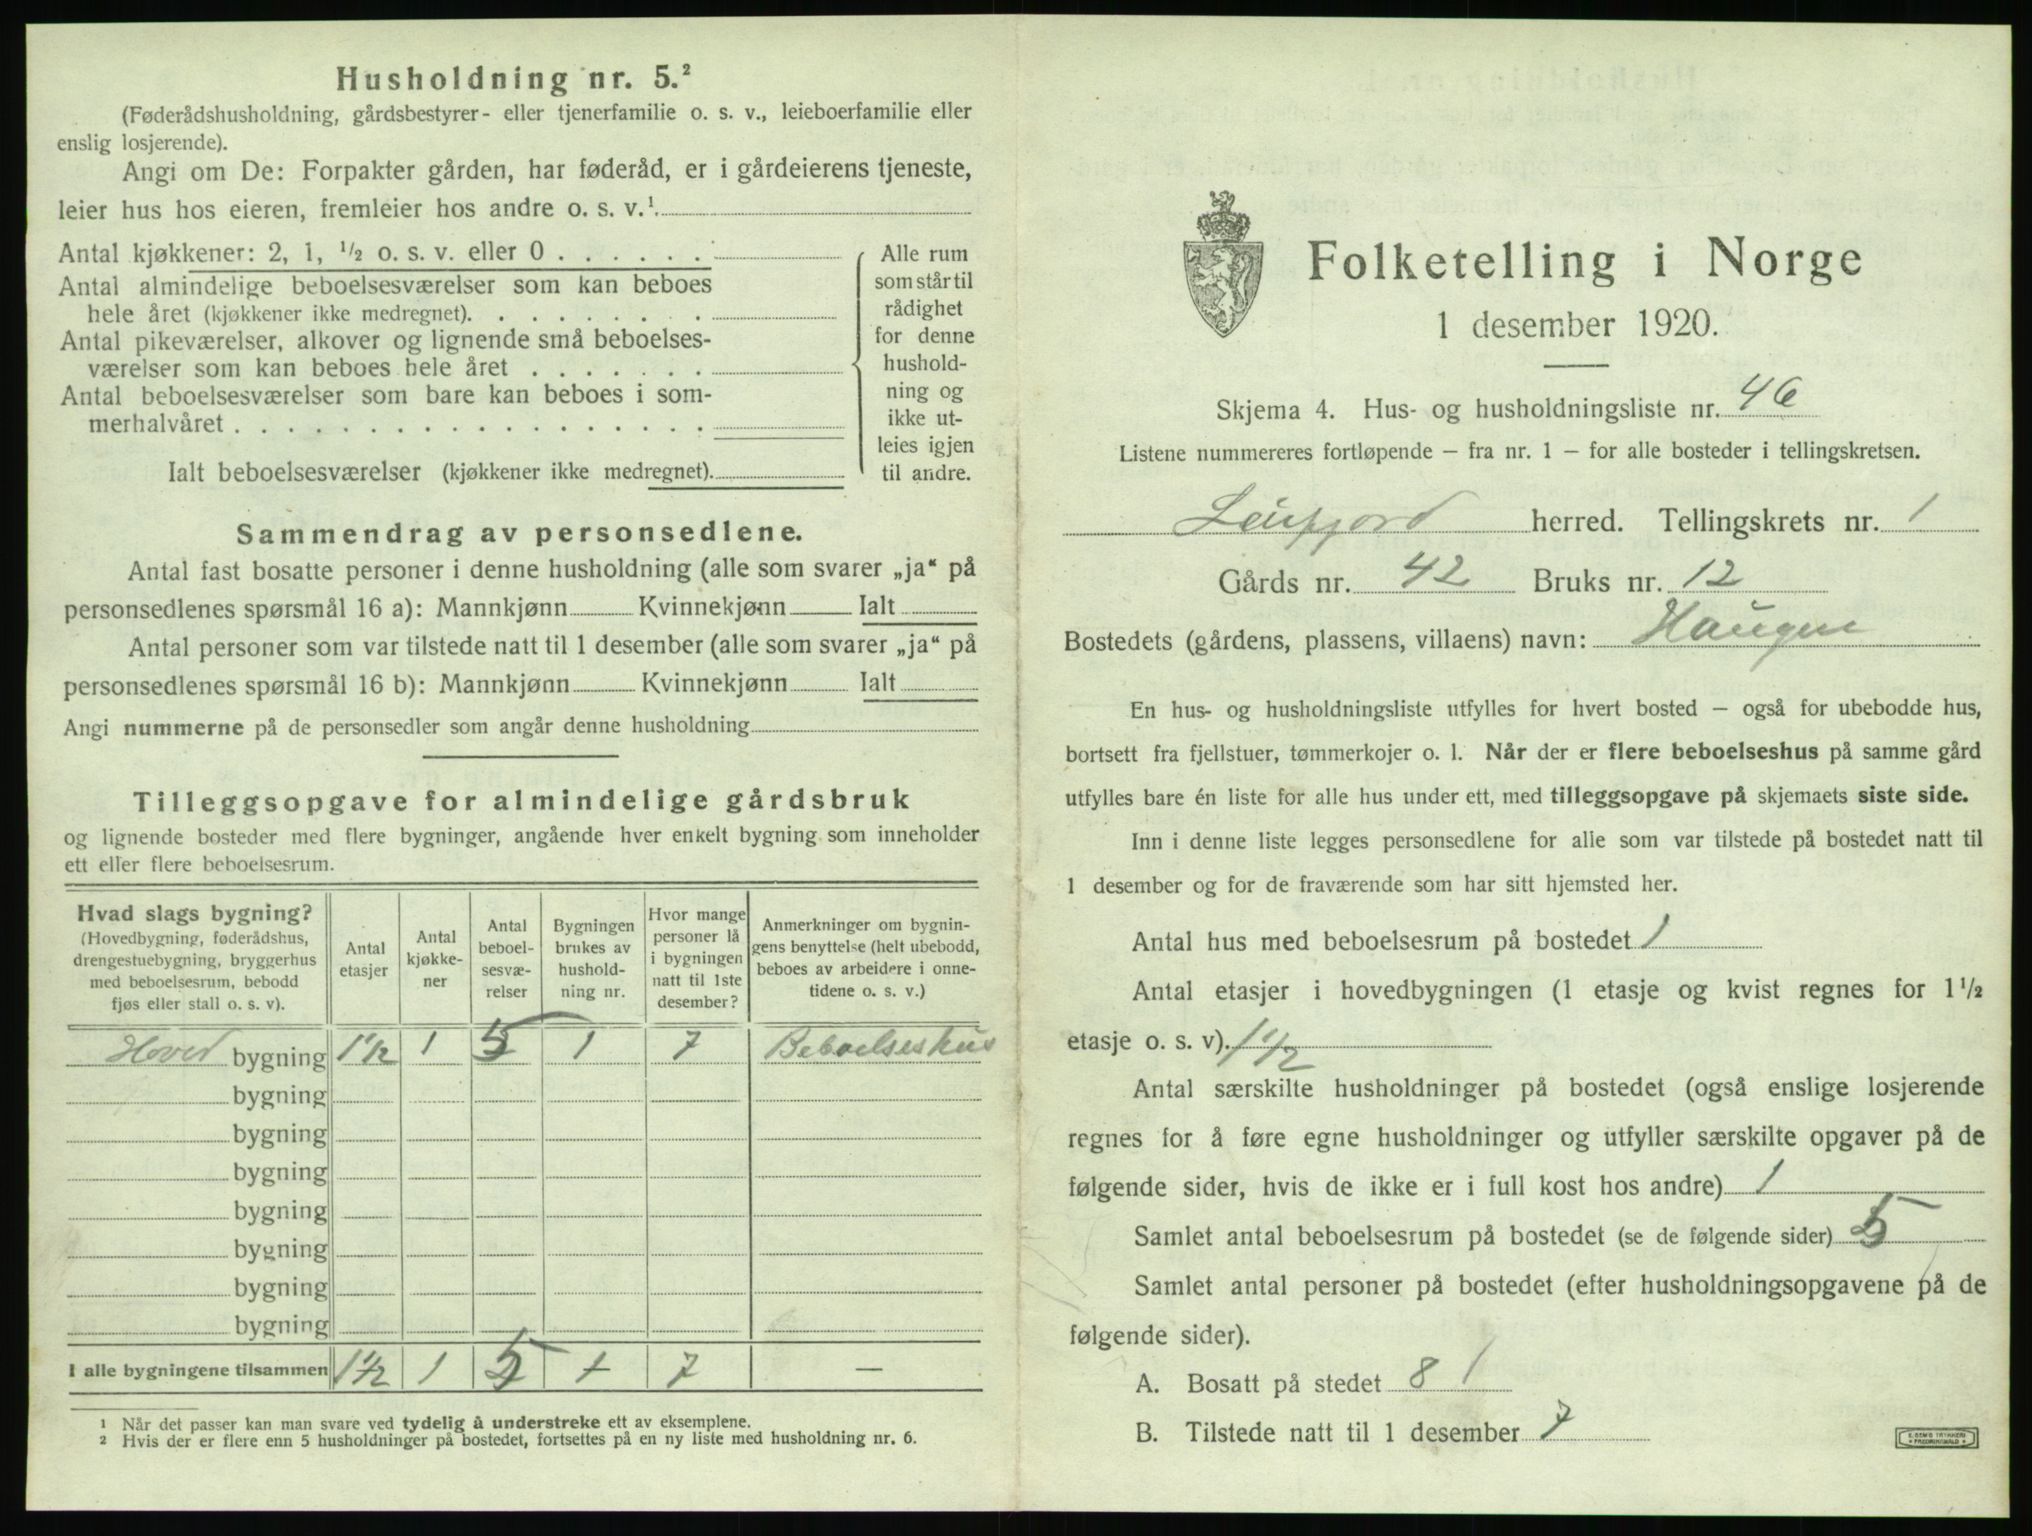 Husholdning nr. 5.²
(Føderådshusholdning, gårdsbestyrer- eller tjenerfamilie o. s. v., leieboerfamilie eller
enslig losjerende).
Angi om De: Forpakter gården, har føderåd, er i gårdeierens tjeneste,
leier hus hos eieren, fremleier hos andre o. s. v.¹
Antal kjøkkener: 2, 1, ½ o. s. v. eller 0 . . . . . .
Antal almindelige beboelsesværelser som kan beboes
hele året (kjøkkener ikke medregnet). . . . . . . . .
Antal pikeværelser, alkover og lignende små beboelses-
værelser som kan beboes hele året . . . . . . .
Antal beboelsesværelser som bare kan beboes i som-
merhalvåret . . . . . . . . . . . . . . . . . .
Ialt beboelsesværelser (kjøkkener ikke medregnet).
Alle rum
som står til
rådighet
for denne
hushold-
ning og
ikke ut-
leies igjen
til andre.
Sammendrag av personsedlene.
Antal fast bosatte personer i denne husholdning (alle som svarer „ja“ på
personsedlenes spørsmål 16 a): Mannkjønn Kvinnekjønn Ialt
Antal personer som var tilstede natt til 1 desember (alle som svarer „ja“ på
personsedlenes spørsmål 16 b): Mannkjønn Kvinnekjønn Ialt
Angi nummerne på de personsedler som angår denne husholdning
Tilleggsopgave for almindelige gårdsbruk
og lignende bosteder med flere bygninger, angående hver enkelt bygning som inneholder
ett eller flere beboelsesrum.
Hvad slags bygning?
(Hovedbygning, føderådshus,
drengestuebygning, bryggerhus
med beboelsesrum, bebodd
fjøs eller stall o. s. v).
Antal
etasjer
Antal
kjøkke-
ner
Antal
beboel-
sesvæ-
relser
Bygningen
brukes av
hushold-
ning nr.
Hvor mange
personer lå
i bygningen
natt til 1ste
desember?
Anmerkninger om bygnin-
gens benyttelse (helt ubebodd,
beboes av arbeidere i onne-
tidene o. s. v.)
Hoved bygning 1½ 1 5 1 7 Beboelseshus
bygning
bygning
bygning
bygning
bygning
bygning
bygning
I alle bygningene tilsammen 1½ 1 5 1 7 —
¹ Når det passer kan man svare ved tydelig å understreke ett av eksemplene.
² Hvis der er flere enn 5 husholdninger på bostedet, fortsettes på en ny liste med husholdning nr. 6.
Folketelling i Norge
1 desember 1920.
Skjema 4. Hus- og husholdningsliste nr. 46
Listene nummereres fortløpende – fra nr. 1 – for alle bosteder i tellingskretsen.
Leirfjord herred. Tellingskrets nr. 1
Gårds nr. 42 Bruks nr. 12
Bostedets (gårdens, plassens, villaens) navn: Haugen
En hus- og husholdningsliste utfylles for hvert bosted – også for ubebodde hus,
bortsett fra fjellstuer, tømmerkojer o. l. Når der er flere beboelseshus på samme gård
utfylles bare én liste for alle hus under ett, med tilleggsopgave på skjemaets siste side.
Inn i denne liste legges personsedlene for alle som var tilstede på bostedet natt til
1 desember og for de fraværende som har sitt hjemsted her.
Antal hus med beboelsesrum på bostedet 1
Antal etasjer i hovedbygningen (1 etasje og kvist regnes for 1½
etasje o. s. v). 1½
Antal særskilte husholdninger på bostedet (også enslige losjerende
regnes for å føre egne husholdninger og utfyller særskilte opgaver på de
følgende sider, hvis de ikke er i full kost hos andre) 1
Samlet antal beboelsesrum på bostedet (se de følgende sider) 5
Samlet antal personer på bostedet (efter husholdningsopgavene på de
følgende sider).
A. Bosatt på stedet 8 1
B. Tilstede natt til 1 desember 7